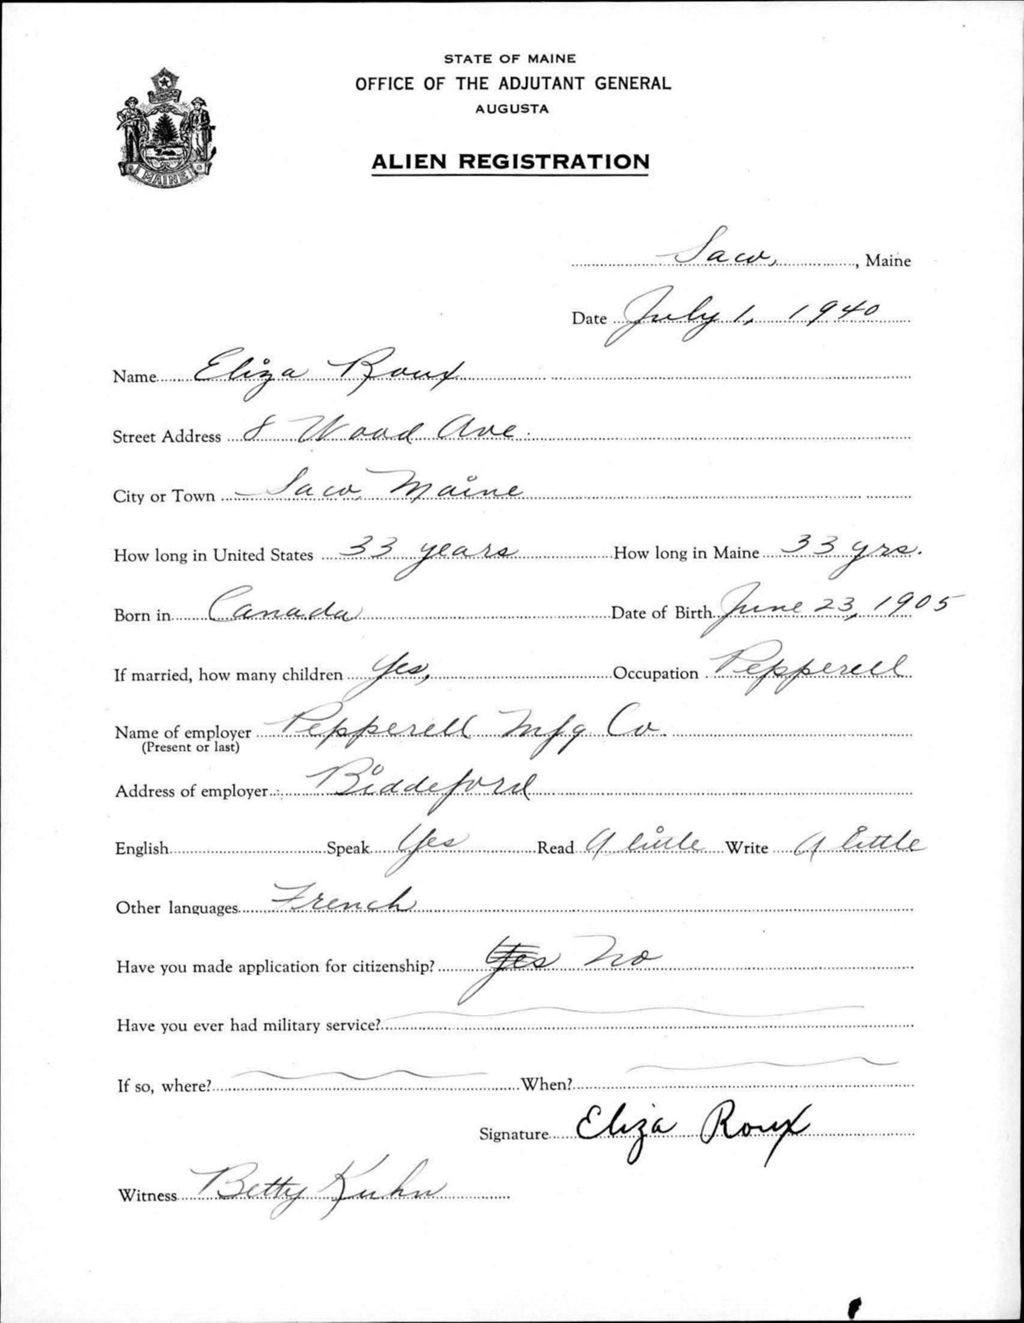 STATE OF MAINE
OFFICE OF THE ADJUTANT GENERAL
AUGUSTA
MAINE
ALIEN REGISTRATION
Saco, , Maine
Date July 1, 1940
Name Eliza Roux
Street Address 8 Wood Ave.
City or Town Saco, Maine
How long in United States 33 years How long in Maine 33 yrs.
Born in Canada Date of Birth June 23, 1905
If married, how many children Yes, Occupation Pepperell
Name of employer Pepperell Mfg Co.
(Present or last)
Address of employer Biddeford
English Speak Yes Read A little Write A little
Other languages French
Have you made application for citizenship? Yes No
Have you ever had military service?
If so, where? When?
Signature Eliza Roux
Witness Betty Kuhn